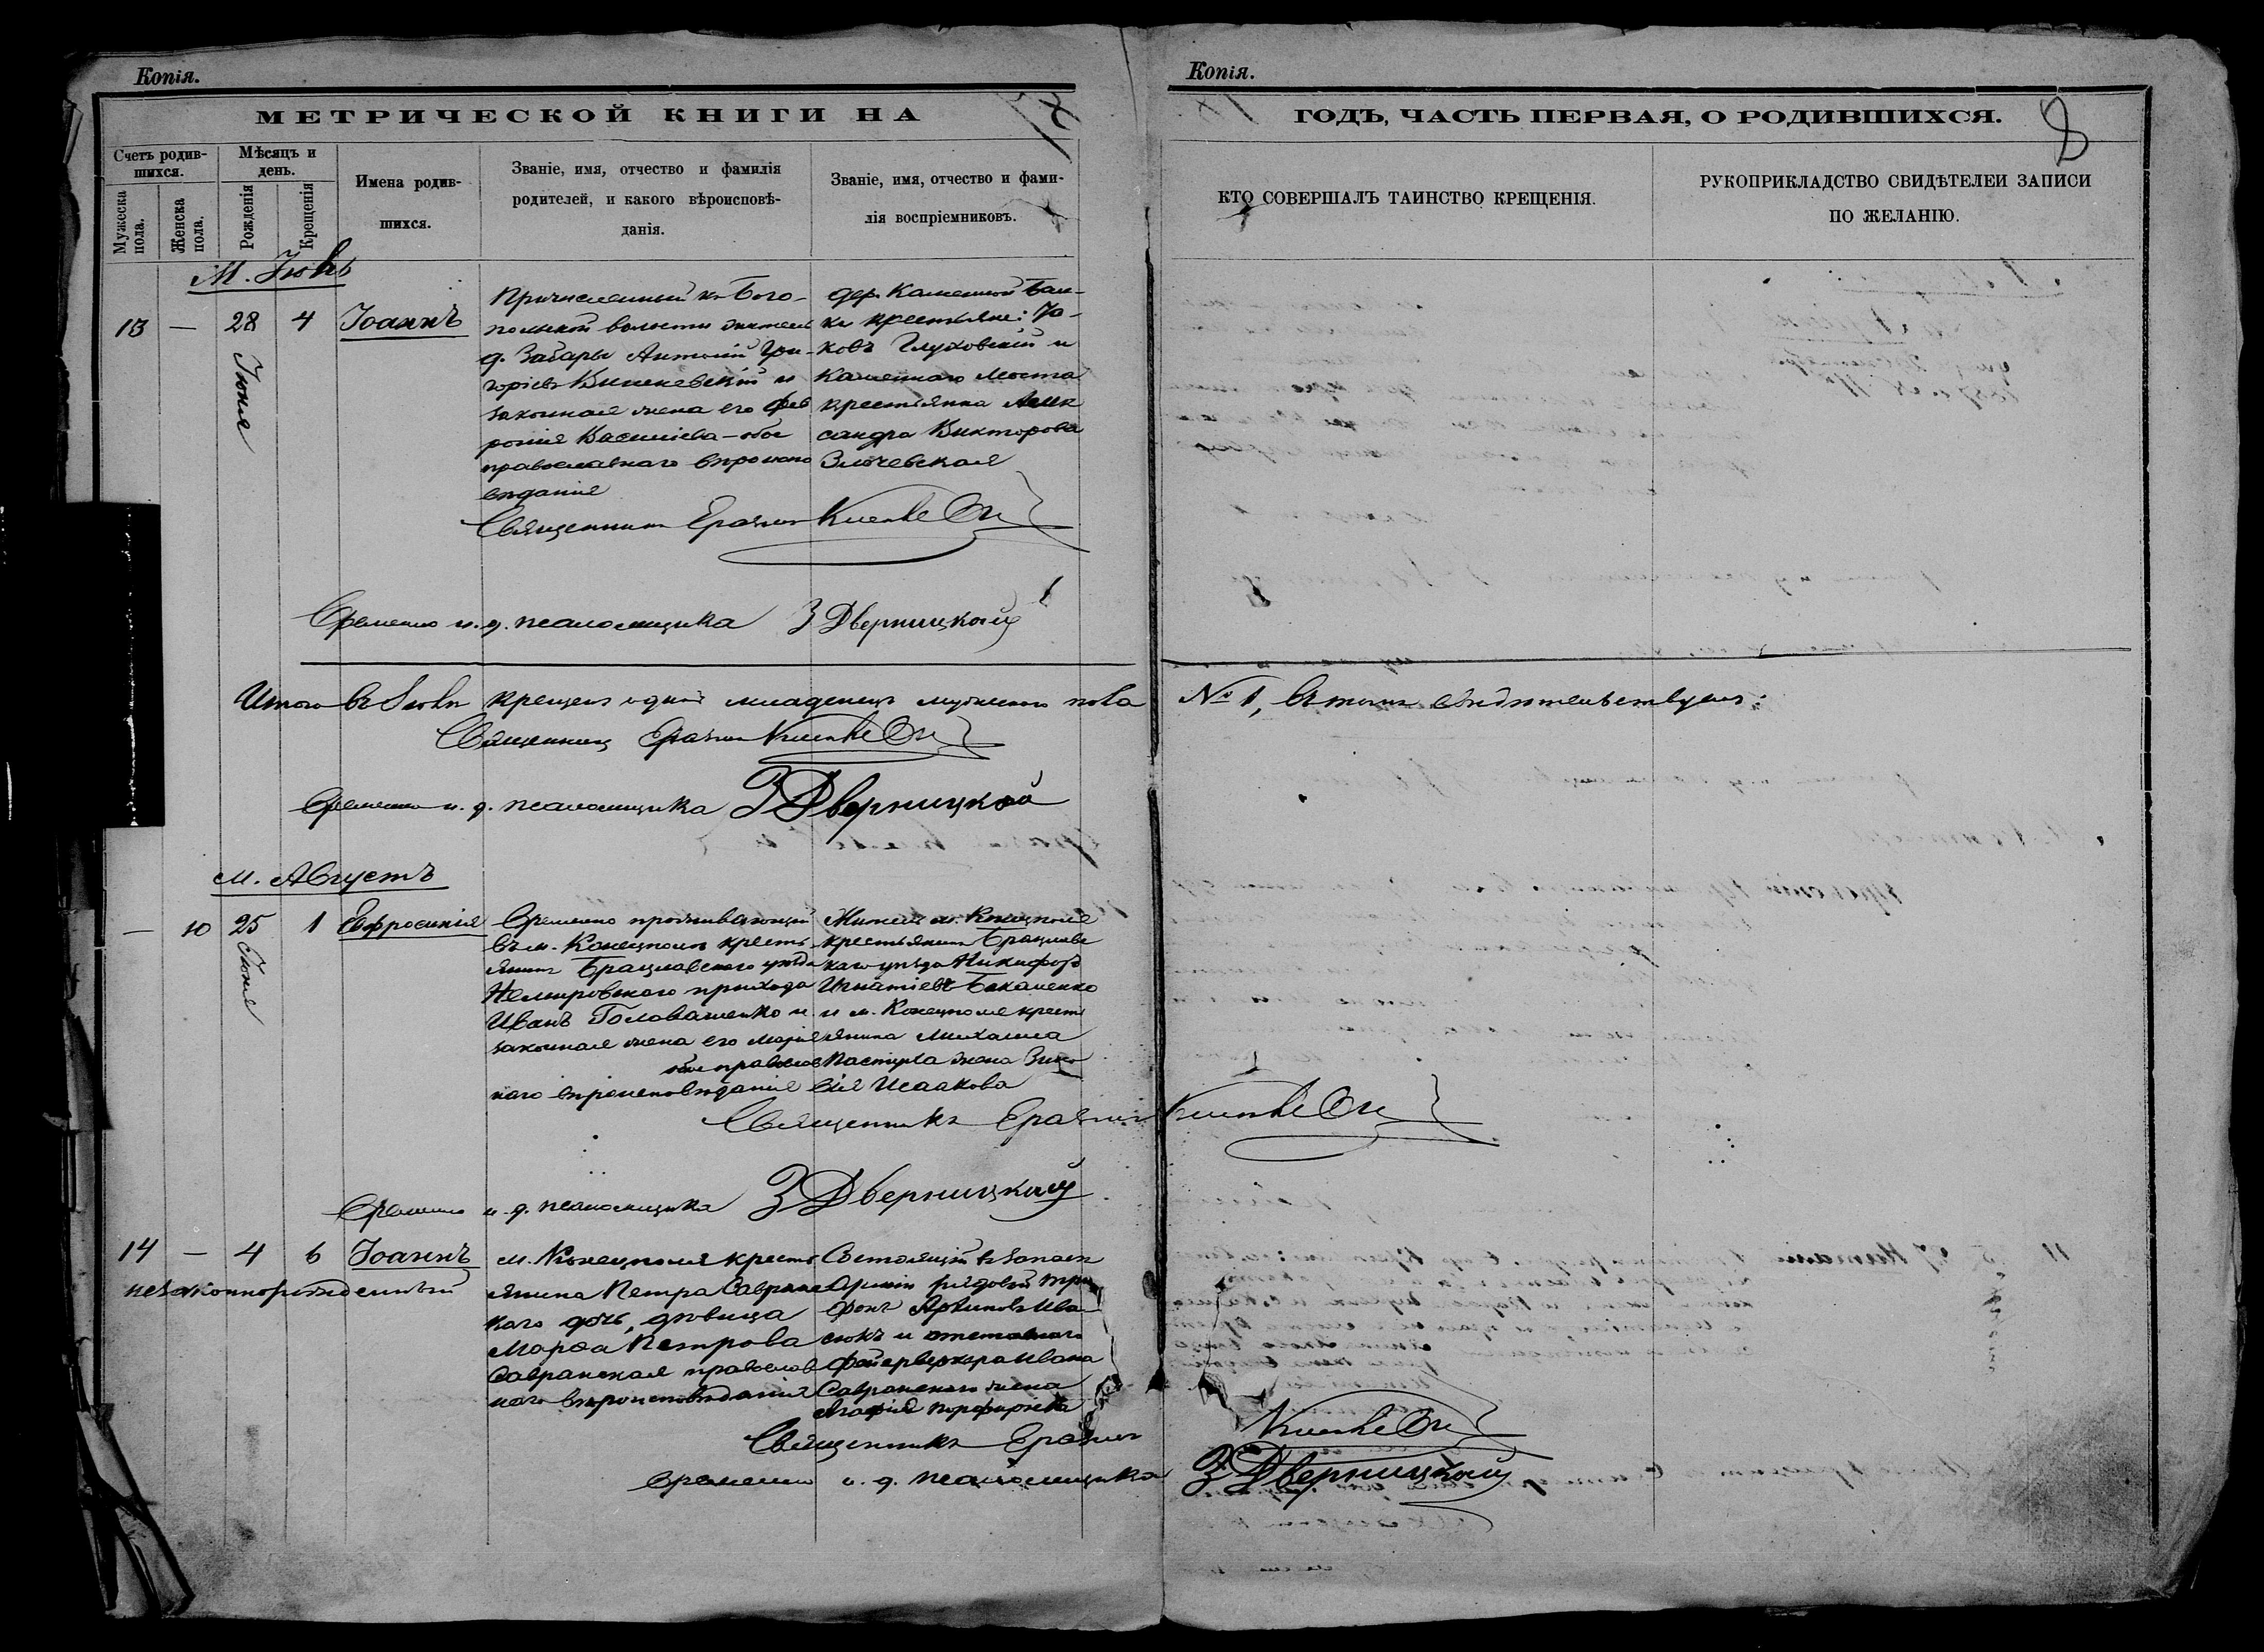 Копія.
МЕТРИЧЕСКОЙ КНИГИ НА
Счетъ родив-
шихся.
Мужеска
пола.
Женска
пола.
Мѣсяцъ и
день.
Рожденія
Крещенія
Имена родив-
шихся.
Званіе, имя, отчество и фамилія
родителей, и какого вѣроисповѣ-
данія.
Званіе, имя, отчество и фами-
лія воспріемниковъ.
М. Іюль
13 — 28 4 Іоаннъ
Іюня
Причисленный къ Бого-
польской волости житель
д. Забары Антоній Гри-
горіевъ Вишневскій и
законная жена его Фев
ронія Василіева — обое
православнаго вѣроиспо
вѣданія
дер. Каменной Бал-
ки крестьяне: Іа-
ковъ Глуховскій и
Каменнаго Моста
крестьянка Алек
сандра Викторова
Злочевская
Священникъ Еразмъ
Временно и. д. псаломщика З Дверницкій
Итого въ Іюлѣ крещенъ одинъ младенецъ мужескаго пола
Священникъ Еразмъ
Временно и. д. псаломщика З Дверницкій
М. Августъ
— 10 25 1 Евфросинія
Іюля
Временно проживающій
въ м. Конецполѣ кресть
янинъ Брацлавского уѣзда
Немировского прихода
Иванъ Головатенко и
законная жена его Марія
обое православ
наго вѣроисповѣданія
Жители м. Конецполя
крестьянинъ Брацлавс
каго уѣзда Никифоръ
Игнатіевъ Бакаленко
и м. Конецполя крест
янина Михаила
Пастуха жена
Исаакова
Священникъ Еразмъ
Временно и. д. псаломщика З Дверницкій
14 — 4 6 Іоаннъ
незаконнорожденный
м. Конецполя кресть
янина Петра Савранс
каго дочь, дѣвица
Марѳа Петрова
Савранская православ
наго вѣроисповѣданія
Состоящій въ запасѣ
Арміи рядовой Три
фонъ Архиповъ Ива
сюкъ и отставнаго
фейерверкера Ивана
Савранскаго жена
Агафія Порфиріева
Священникъ Еразмъ
временно и. д. псаломщика З Дверницкій
Копія.
ГОДЪ, ЧАСТЬ ПЕРВАЯ, О РОДИВШИХСЯ.
8
КТО СОВЕРШАЛЪ ТАИНСТВО КРЕЩЕНІЯ.
РУКОПРИКЛАДСТВО СВИДѢТЕЛЕЙ ЗАПИСИ
ПО ЖЕЛАНІЮ.
№ 1, въ томъ свидѣтельствуемъ: